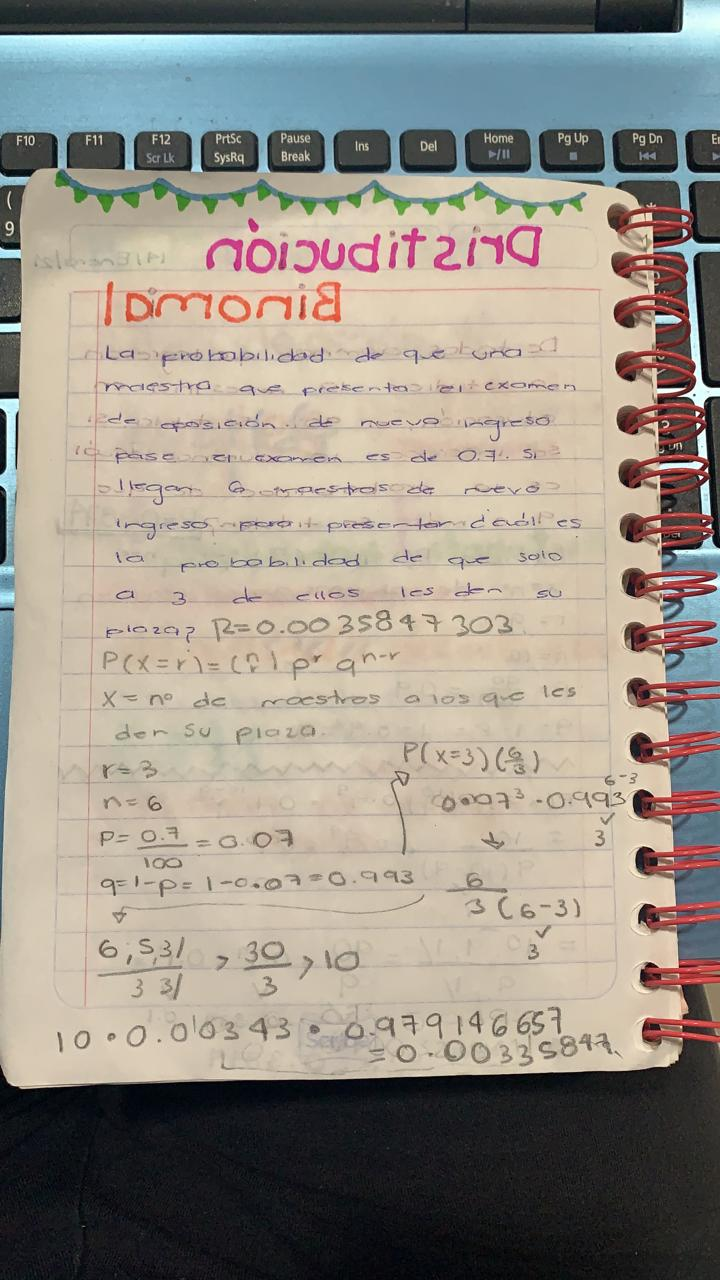 F10
F11
F12
Scr Lk
PrtSc
SysRq
Pause
Break
Ins
Del
Home
Pg Up
Pg Dn
(
9
Dristibución
Binomial
La probabilidad de que una
maestra que presenta el examen
de oposición de nuevo ingreso
pase el examen es de 0.7. Si
llegan 6 maestros de nuevo
ingreso para presentar cuál es
la probabilidad de que solo
a 3 de ellos les den su
plaza? R=0.0035847303
P(x=r)=(n r) p^r q^n-r
X = nº de maestros a los que les
den su plaza.
r=3
n=6
P= 0.7/100 = 0.07
q=1-p= 1-0.07=0.993
P(x=3)(6/3)
0.007³ · 0.993^6-3
3
6
3 (6-3)
3
6,5,3! / 3 3! , 30/3 , 10
10 · 0.00343 · 0.979146657
= 0.00335847